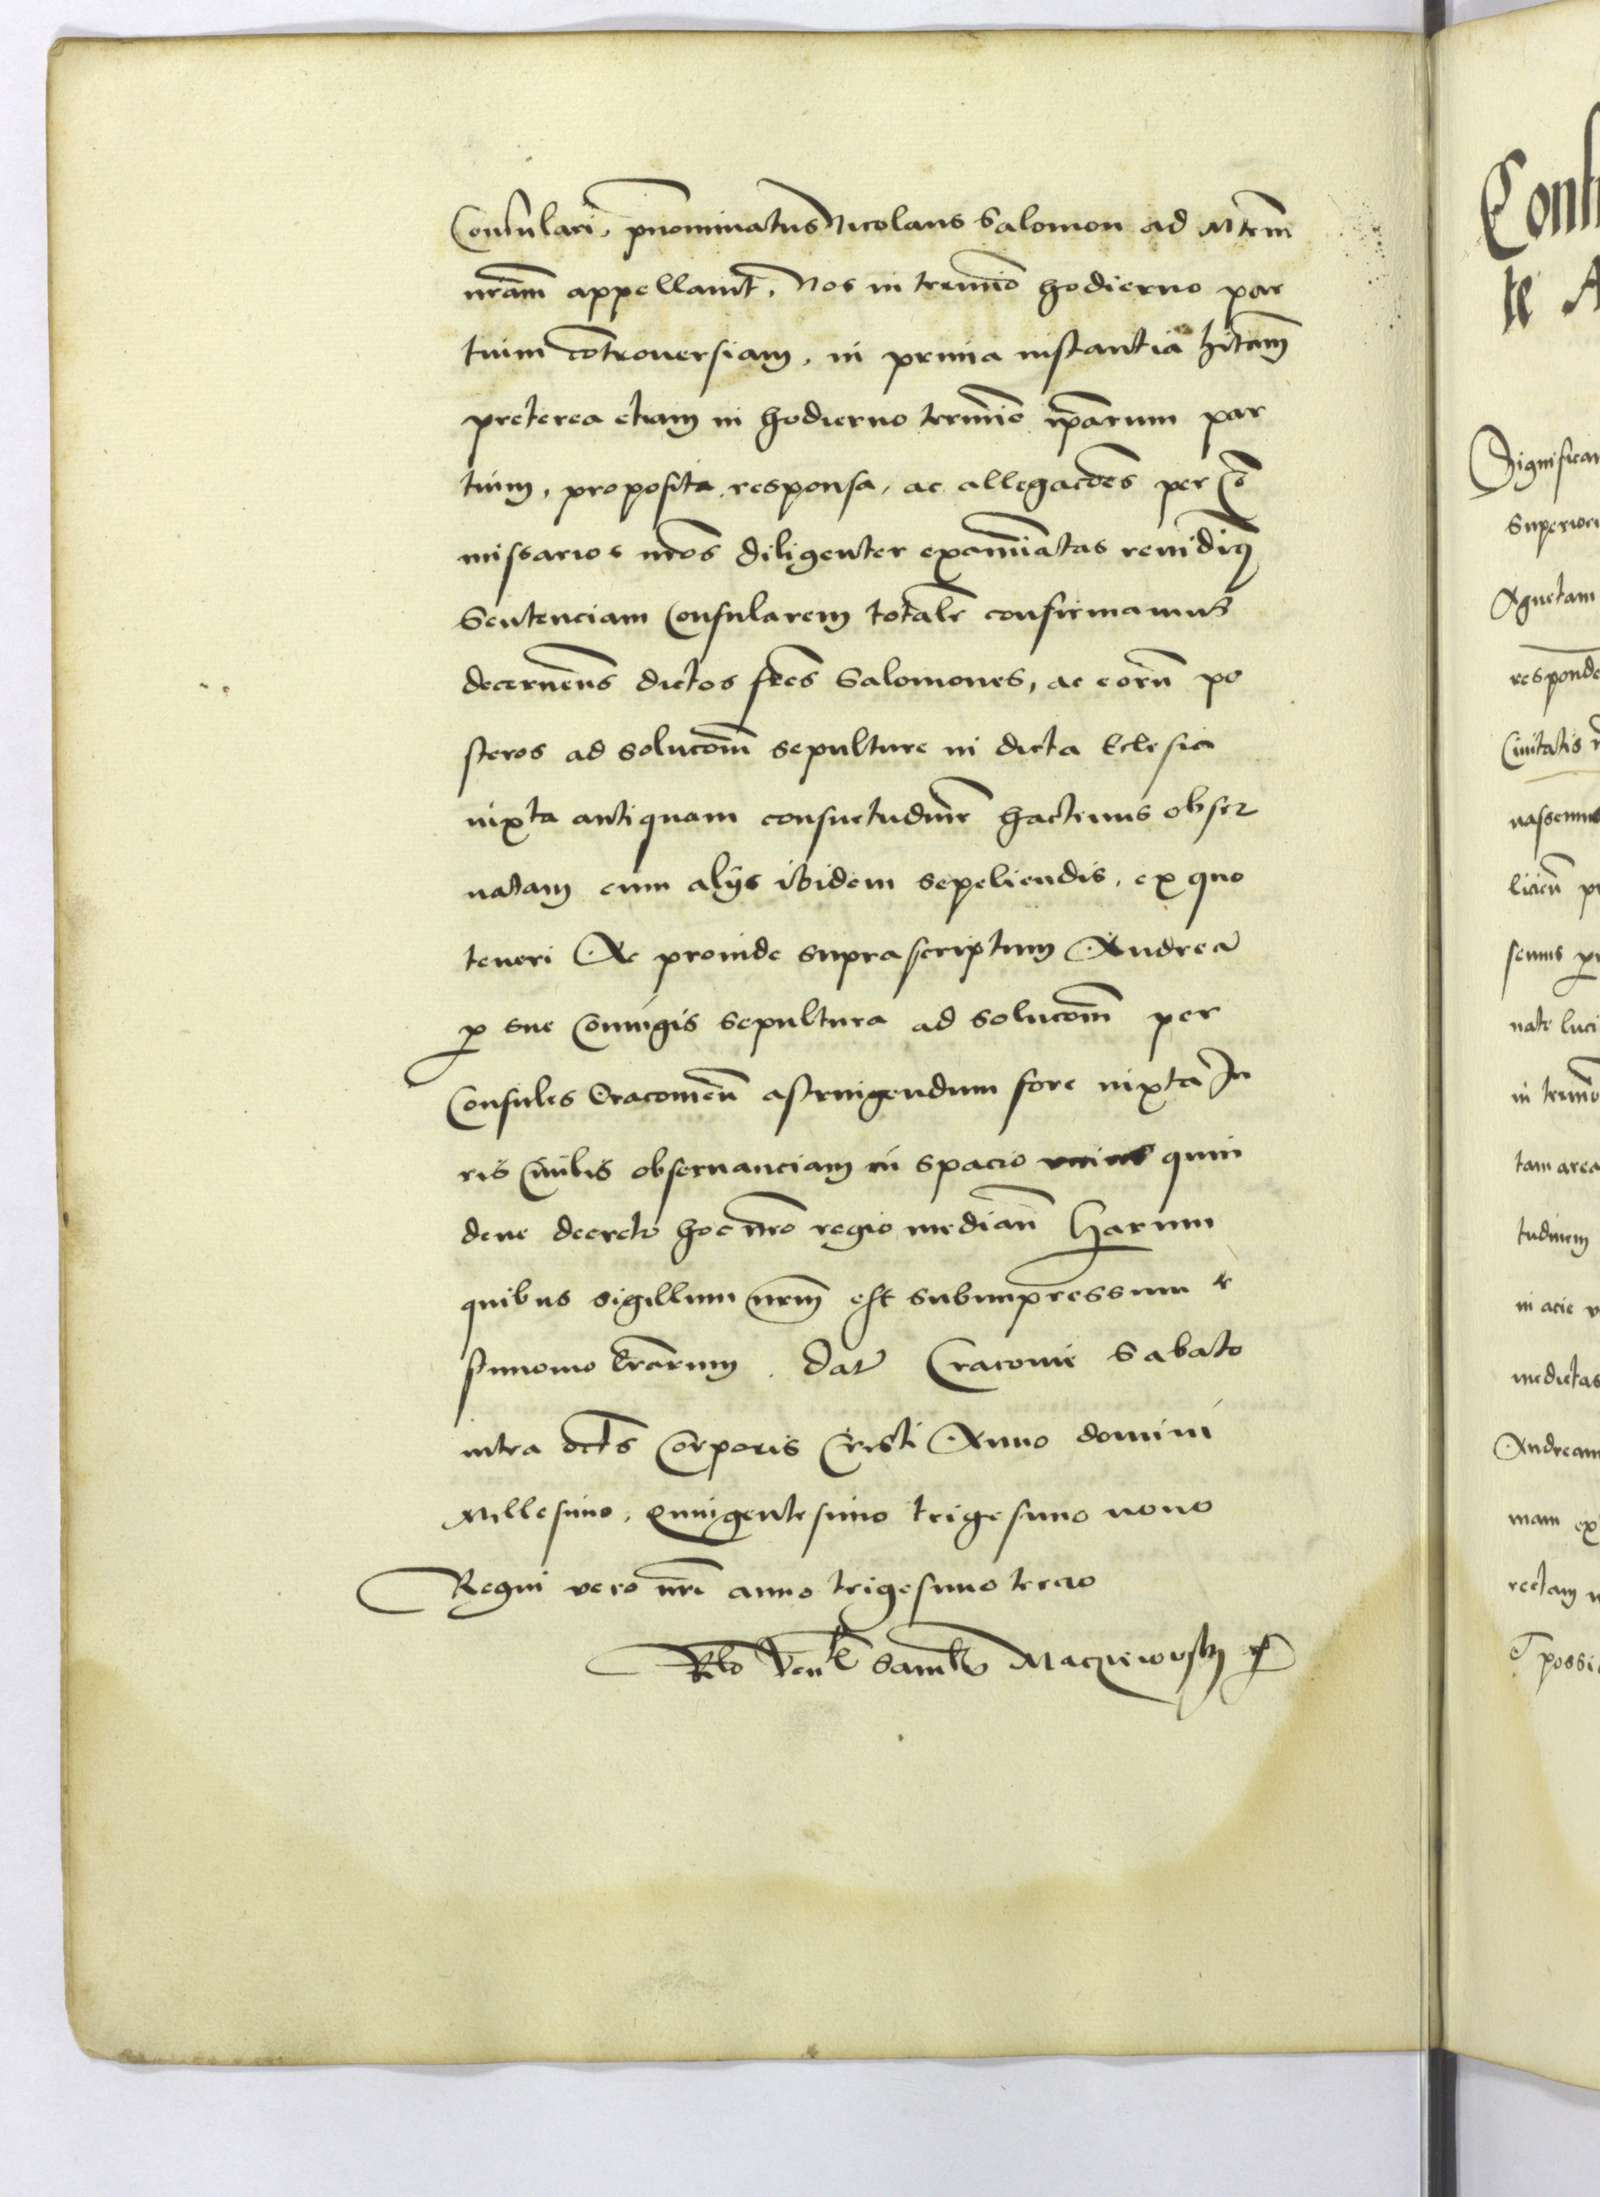 Consulari, pnominatus Nicolaus Salomon ad Mtem
nram appellauit. Nos in termino hodierno par
tium controuersiam, in prima instantia hitam
preterea etiam in hodierno termino ipsarum par
tium, proposita responsa, ac allegacoes per Co
missarios nros diligenter examinatas
Sentenciam Consularem totalr confirmamus
decernens dictos fres Salomones, ac eorum po
steros ad solucom sepulture in dicta Eclesia
iuxta antiquam consuetudine hactenus obser
uatam cum alijs ibidem sepeliendis, ex quo
teneri Ac proinde suprascriptum Andrea
p sue Coniugis sepultura ad solucom per
Consules Cracouien astringendum fore iuxta Iu
ris Ciuilis obseruanciam in spacio quin
dene decreto hoc nro regio median Harum
quibus sigillum nrm est subimpressum
lrarum. Dat Cracouie Sabato
intra octs Corporis Cristi Anno domini
Millesimo, Quingentesimo trigesimo nono
Regni vero nri anno trigesimo tercio
Rlo Ven Samlis Maczieiowsky
Cont
te A
Significa
Superiori
Agnetam
responde
Ciuitatis
uassemus
licicu
semus
nate luci
in termino
tam area
tudinem
in acie
medietas
Andream
mam
rectam
possi